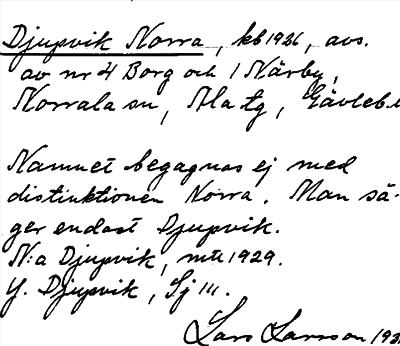 Djupvik Norra, kb 1926, avs.
av nr 4 Borg och 1 Närby,
Norrala sn, Ala tg, Gävleb.
Namnet begagnas ej med
distinktionen Norra. Man sä-
ger endast Djupvik.
N:a Djupvik, mtl 1929.
Y. Djupvik, Sj 111.
Lars Larsson 193